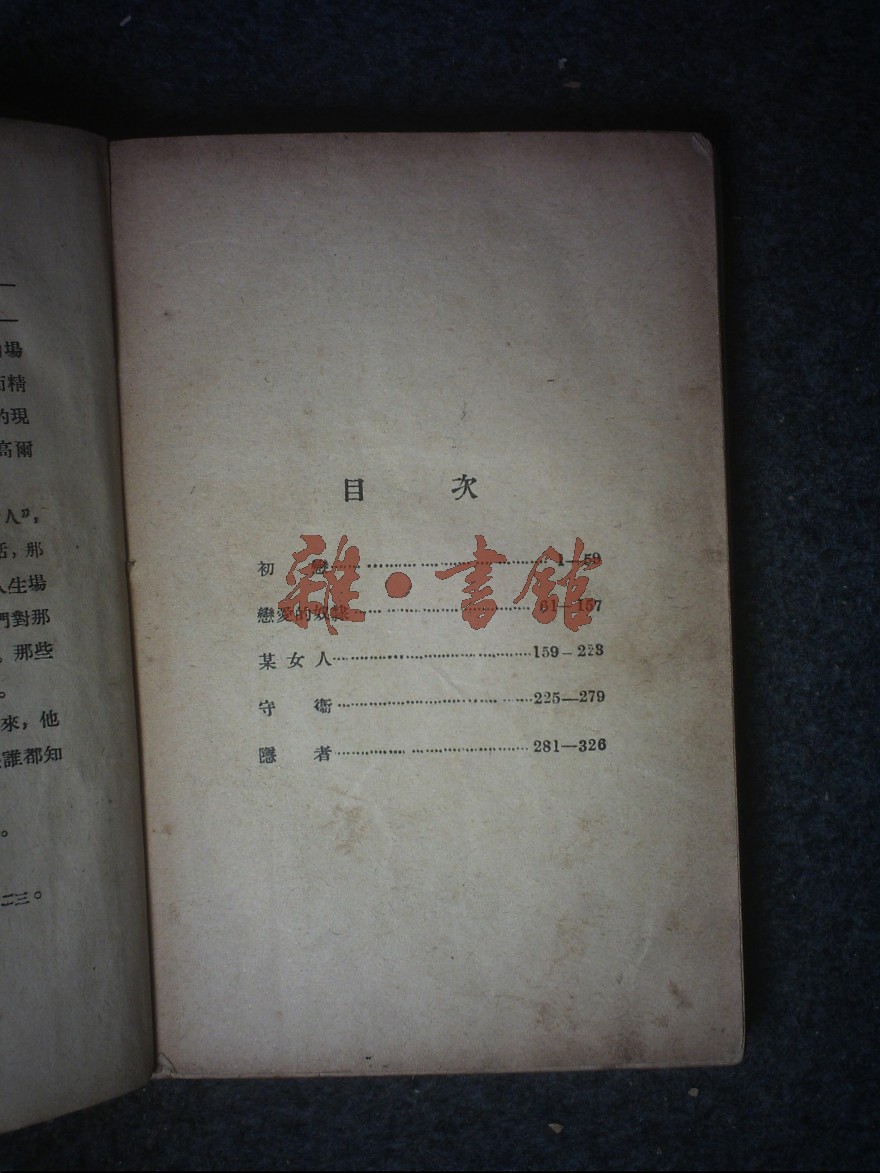 目次
初戀 1—59
戀愛的奴隸 61—157
某女人 159—223
守衞 225—279
隱者 281—326
雜·書館
場
而精
的現
高爾
人”,
活,那
人生場
們對那
。那些
。
來,他
誰都知
。
二三。